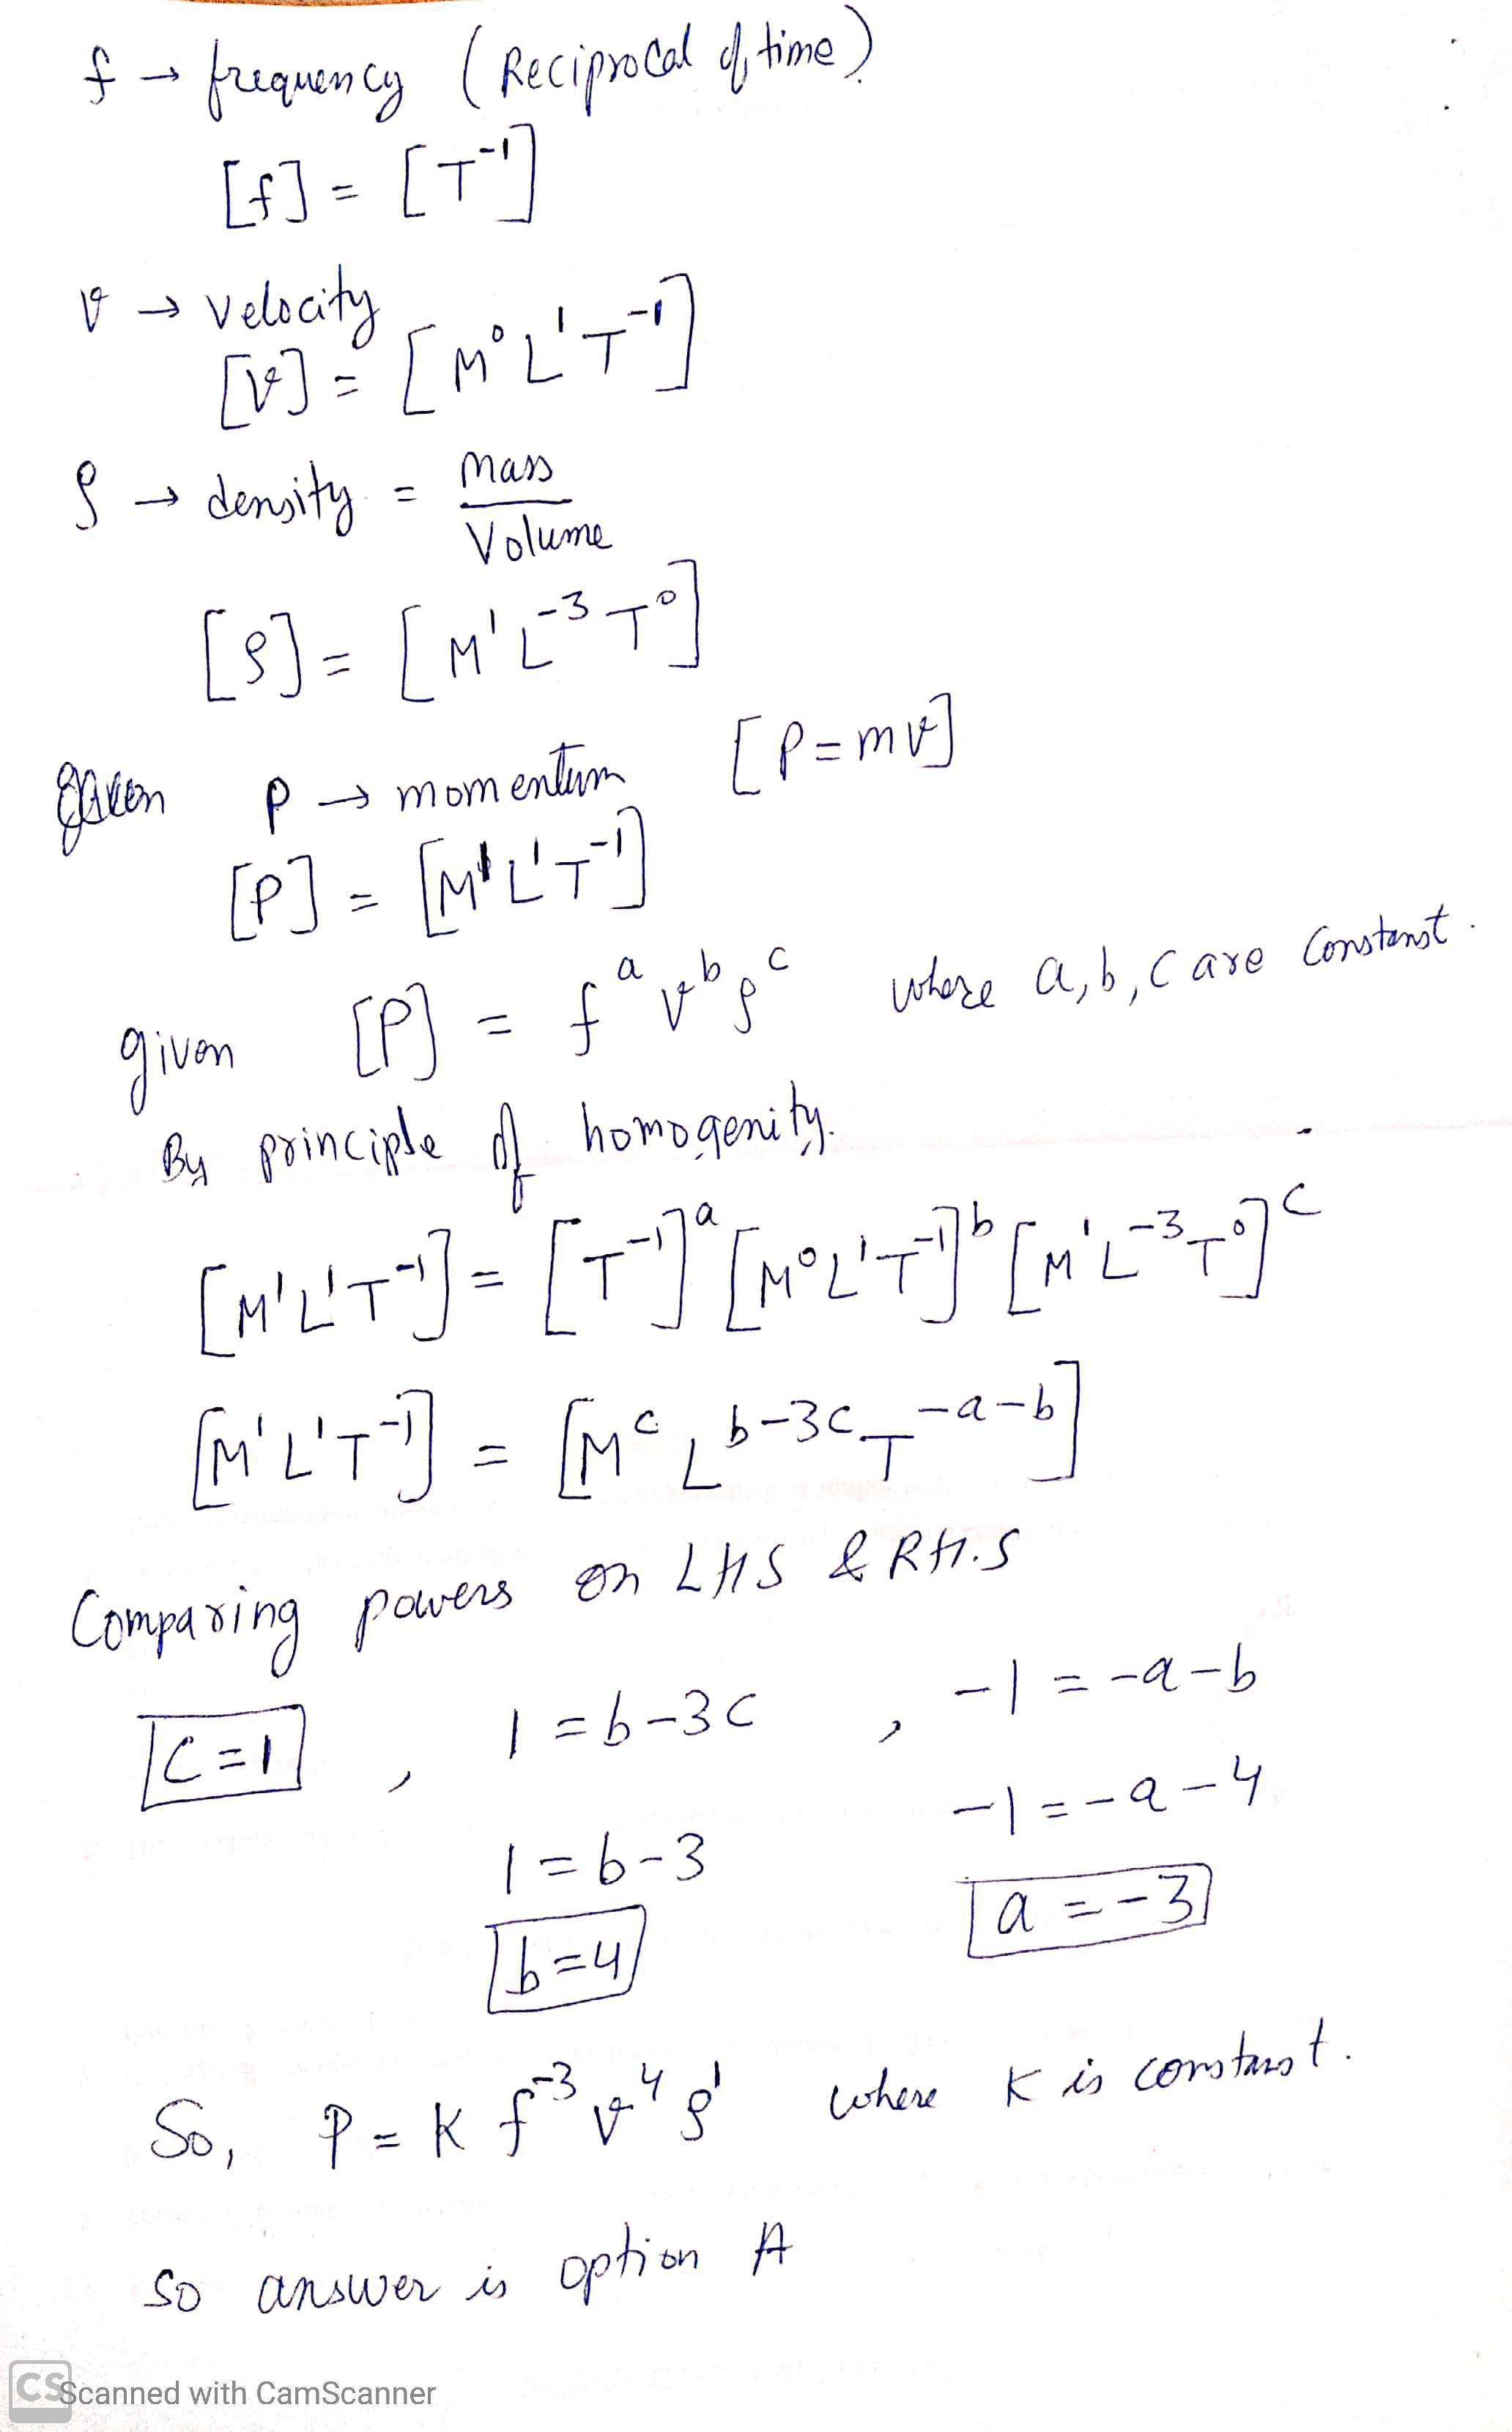 f → frequency (Reciprocal of time)
[f] = [T⁻¹]
v → velocity
[v] = [M⁰L¹T⁻¹]
ρ → density = Mass / Volume
[ρ] = [M¹L⁻³T⁰]
p → momentum [P=mv]
[P] = [M¹L¹T⁻¹]
given [P] = fᵃ vᵇ ρᶜ where a, b, c are Constant.
By principle of homogenity.
[M¹L¹T⁻¹] = [T⁻¹]ᵃ [M⁰L¹T⁻¹]ᵇ [M¹L⁻³T⁰]ᶜ
[M¹L¹T⁻¹] = [Mᶜ L^b-3c T^-a-b]
Comparing powers on LHS & RH.S
C=1 , 1=b-3c , -1=-a-b
1=b-3 -1=-a-4
b=4 a=-3
So, P = K f⁻³ v⁴ ρ¹ where K is constant.
So answer is option A
CS Scanned with CamScanner